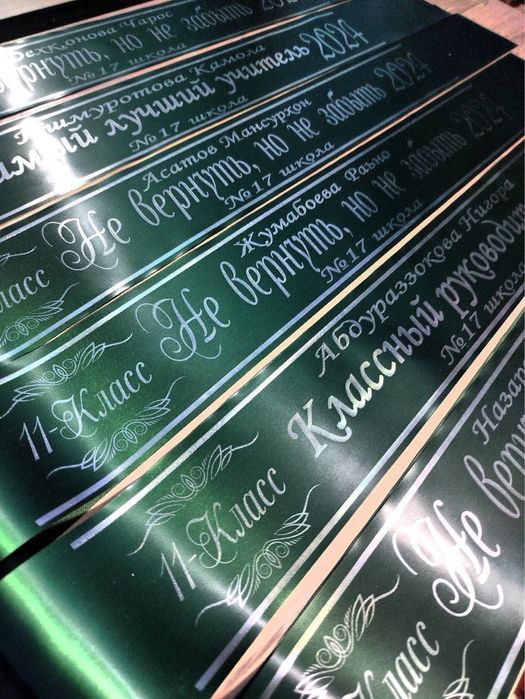 Чарос
вернуть, но не забыть 2024
№17 школа
Ташмуротова Камола
самый лучший учитель 2024
№17 школа
Асатов Мансурхон
Класс Не вернуть, но не забыть 2024
№17 школа
Жумабоева Раъно
11-Класс Не вернуть, но не забыть 2024
№17 школа
Абдураззокова Нигора
11-Класс Классный руководит
№17 школа
Назар
Класс Не верн